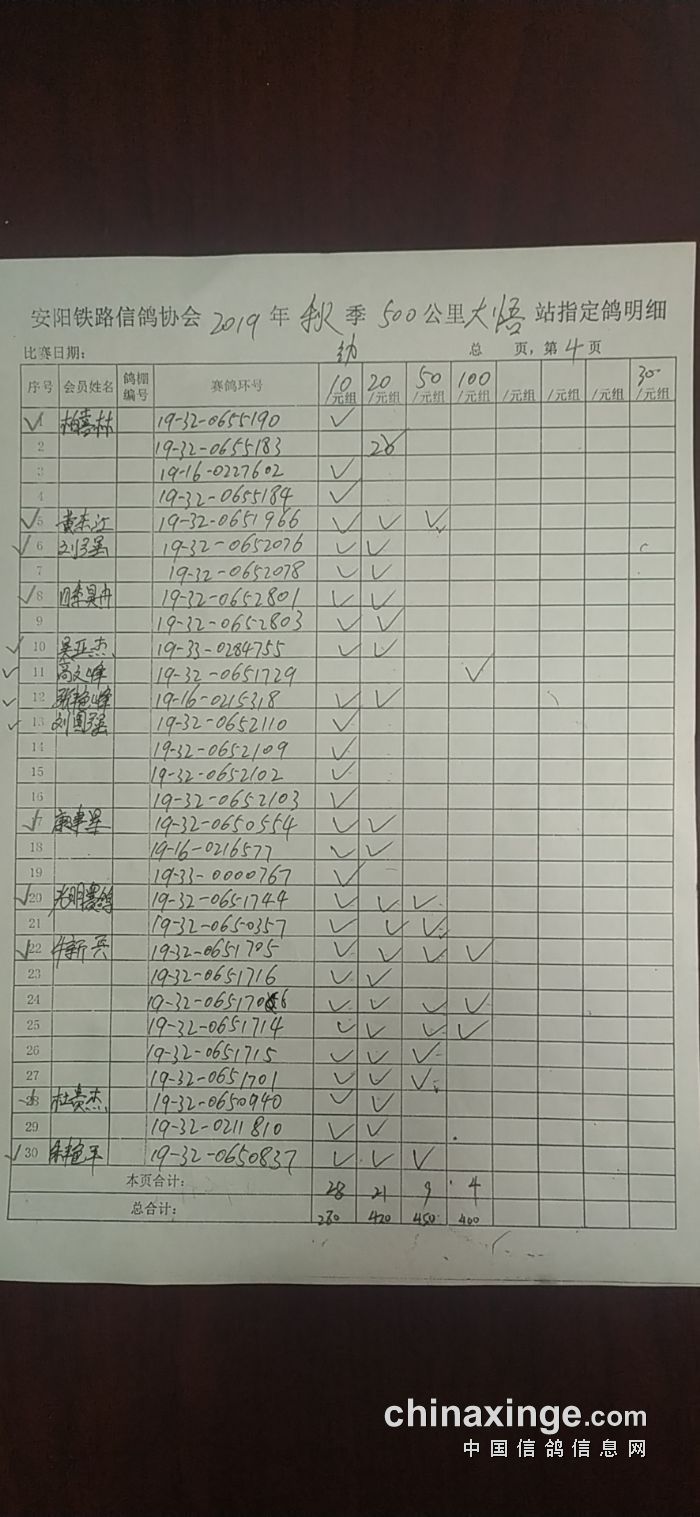 安阳铁路信鸽协会 2019 年 秋 季 500 公里 大悟 站指定鸽明细
比赛日期: 幼 总 页,第 4 页
序号 会员姓名 鸽棚编号 赛鸽环号 10/元组 20/元组 50/元组 100/元组 /元组 /元组 /元组 30/元组
✓ 1 柏喜林 19-32-0655190 ✓
2 19-32-0655183
3 19-16-0227602 ✓
4 19-32-0655184 ✓
✓ 5 黄东江 19-32-0651966 ✓ ✓ ✓
✓ 6 刘 19-32-0652076 ✓ ✓
7 19-32-0652078 ✓ ✓
✓ 8 19-32-0652801 ✓ ✓
9 19-32-0652803 ✓ ✓
✓ 10 吴亚杰 19-33-0284755 ✓ ✓
✓ 11 高文峰 19-32-0651729 ✓
✓ 12 张艳峰 19-16-0215318 ✓ ✓
✓ 13 刘国强 19-32-0652110 ✓
14 19-32-0652109 ✓
15 19-32-0652102 ✓
16 19-32-0652103 ✓
✓ 17 19-32-0650554 ✓ ✓
18 19-16-0216577 ✓ ✓
19 19-33-0000767 ✓
✓ 20 光明赛鸽 19-32-0651744 ✓ ✓ ✓
21 19-32-0650357 ✓ ✓ ✓
✓ 22 牛新兵 19-32-0651705 ✓ ✓ ✓ ✓
23 19-32-0651716 ✓ ✓
24 19-32-0651706 ✓ ✓ ✓ ✓
25 19-32-0651714 ✓ ✓ ✓ ✓
26 19-32-0651715 ✓ ✓ ✓
27 19-32-0651701 ✓ ✓ ✓
28 杜贵杰 19-32-0650940 ✓ ✓
29 19-32-0211810 ✓ ✓
✓ 30 19-32-0650837 ✓ ✓ ✓
本页合计: 28 21 9 4
总合计: 280 420 450 400
chinaxinge.com
中国信鸽信息网